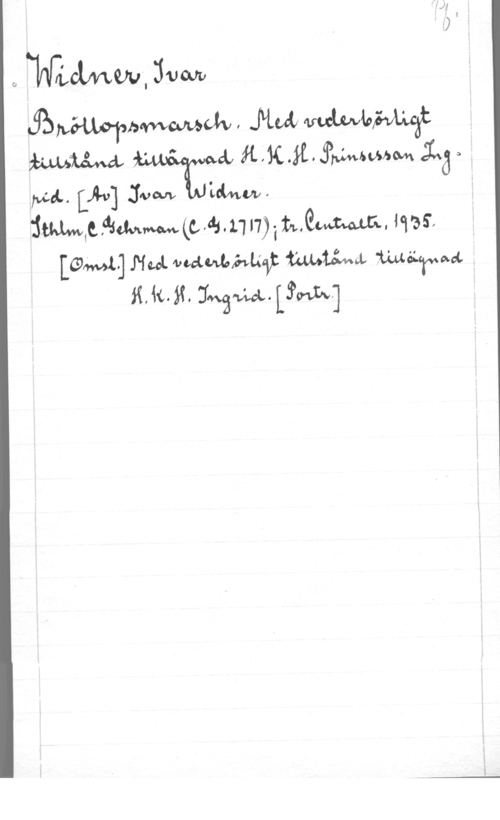 Pf.
Widner, Ivar
Bröllopsmarsch. Med vederbörligt
tillstånd tillägnad H.K.H. Prinsessan Ing-
rid. [Av] Ivar Widner.
Sthlm, C. Gehrman (C.G. 2717); tr. Centraltr., 1935.
[Omsl.] Med vederbörligt tillstånd tillägnad
H.K.H. Ingrid. [Portr.]